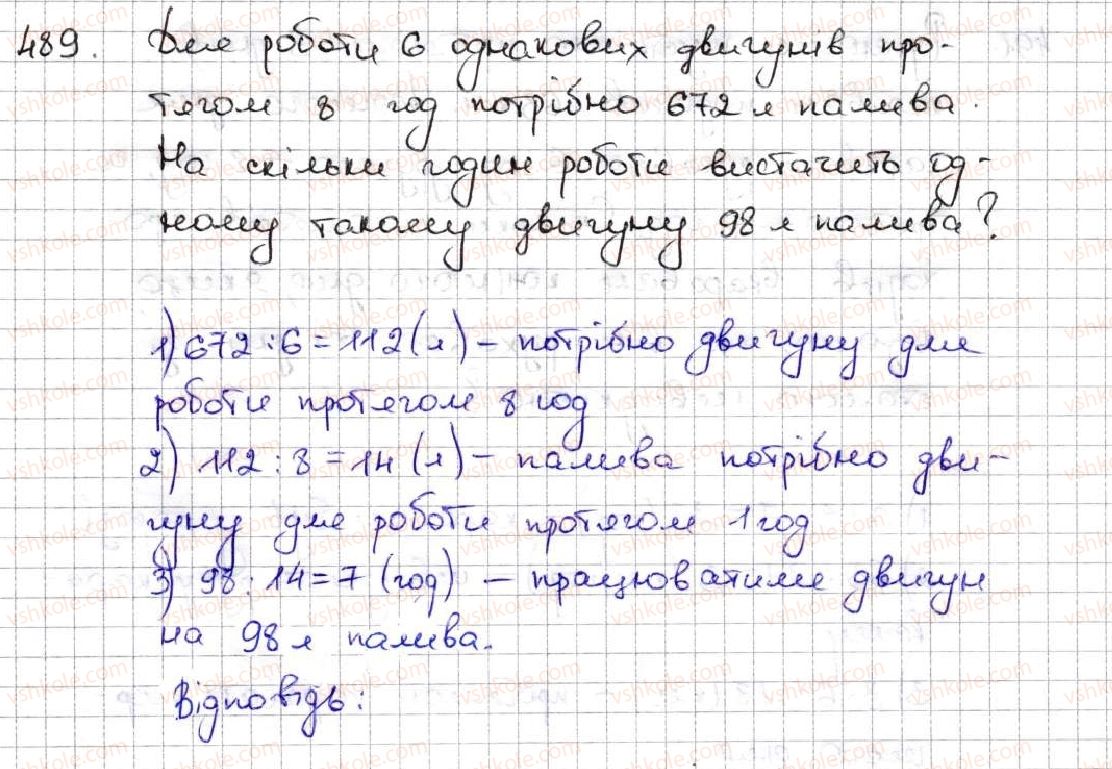 489. Для роботи 6 однакових двигунів про-
тягом 8 год потрібно 672 л палива.
На скільки годин роботи вистачить од-
ному такому двигуну 98 л палива?
1) 672 : 6 = 112 (л) – потрібно двигуну для
роботи протягом 8 год
2) 112 : 8 = 14 (л) – палива потрібно дви-
гуну для роботи протягом 1 год
3) 98 : 14 = 7 (год) – працюватиме двигун
на 98 л палива.
Відповідь: